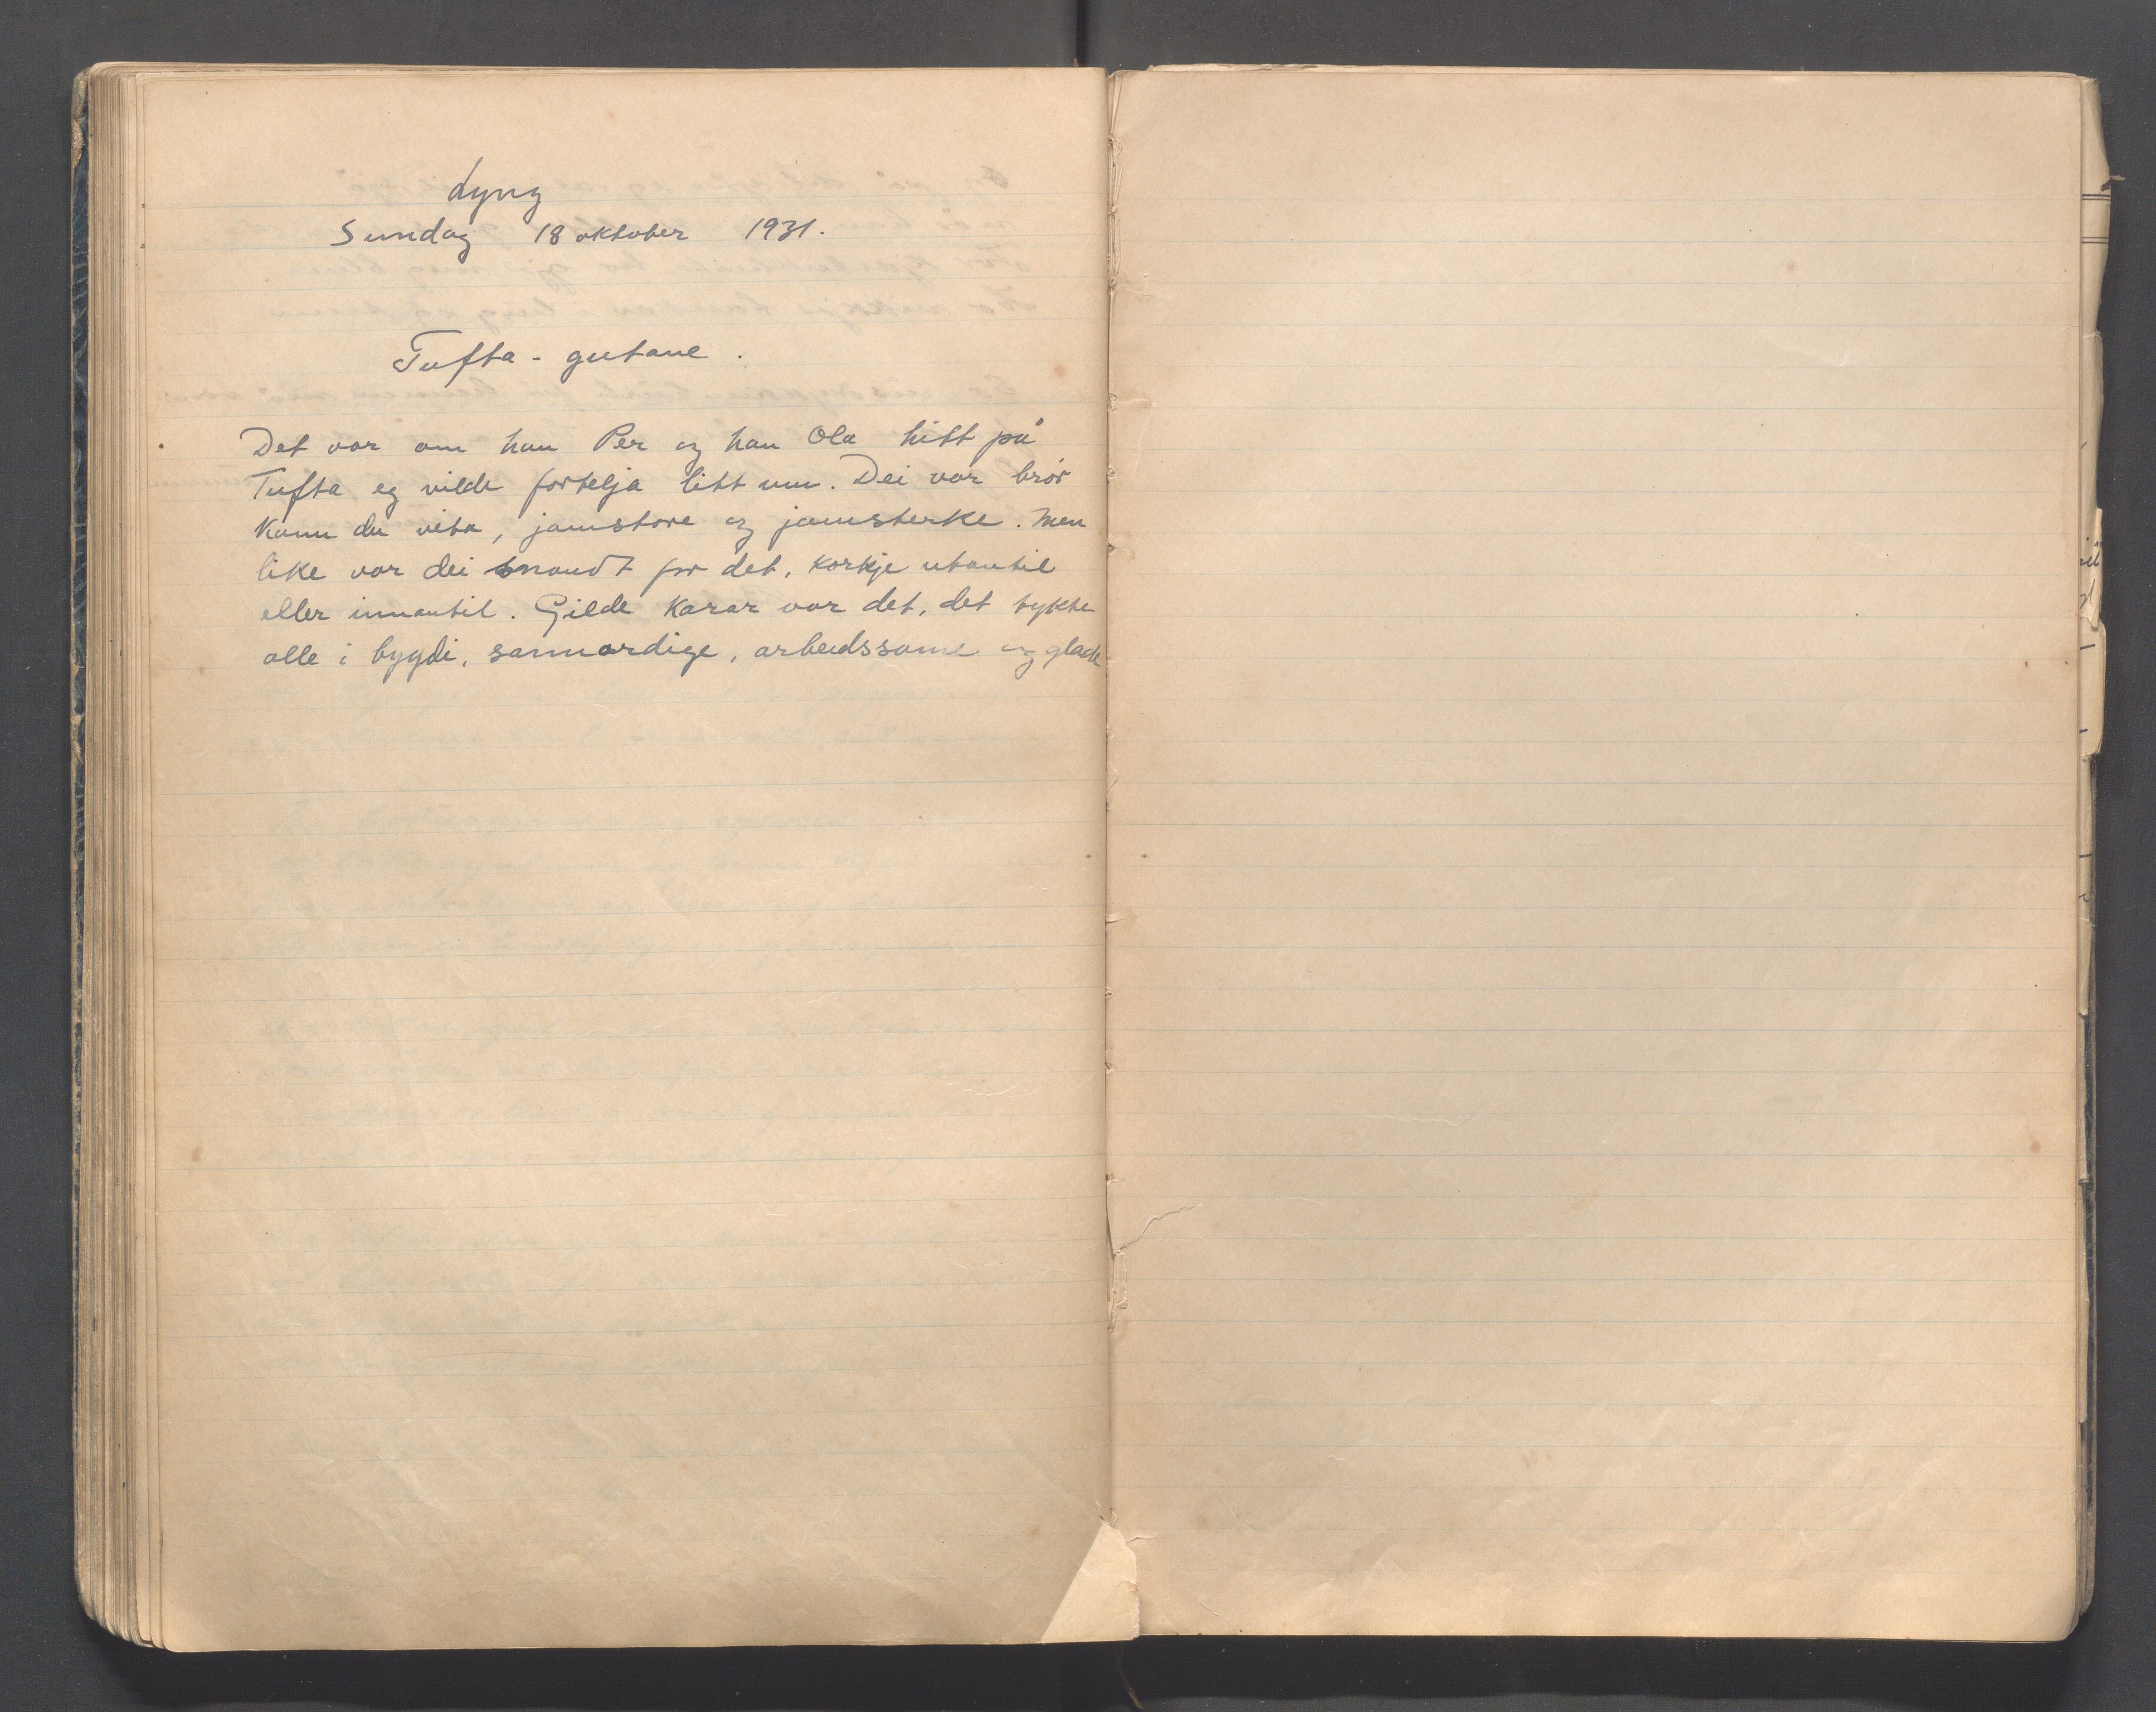 Lyng
Sundag 18 oktober 1931.
Tufta-gutane.
Det var om han Per og han Ola hitt på
Tufta eg vilde fortelja litt um. Dei var brør
kann du vita, jamstore og jamsterke. Men
like var dei snaudt for det, korkje utantil
eller innantil. Gilde karar var det, det tykte
alle i bygdi, sannordige, arbeidssame og glade